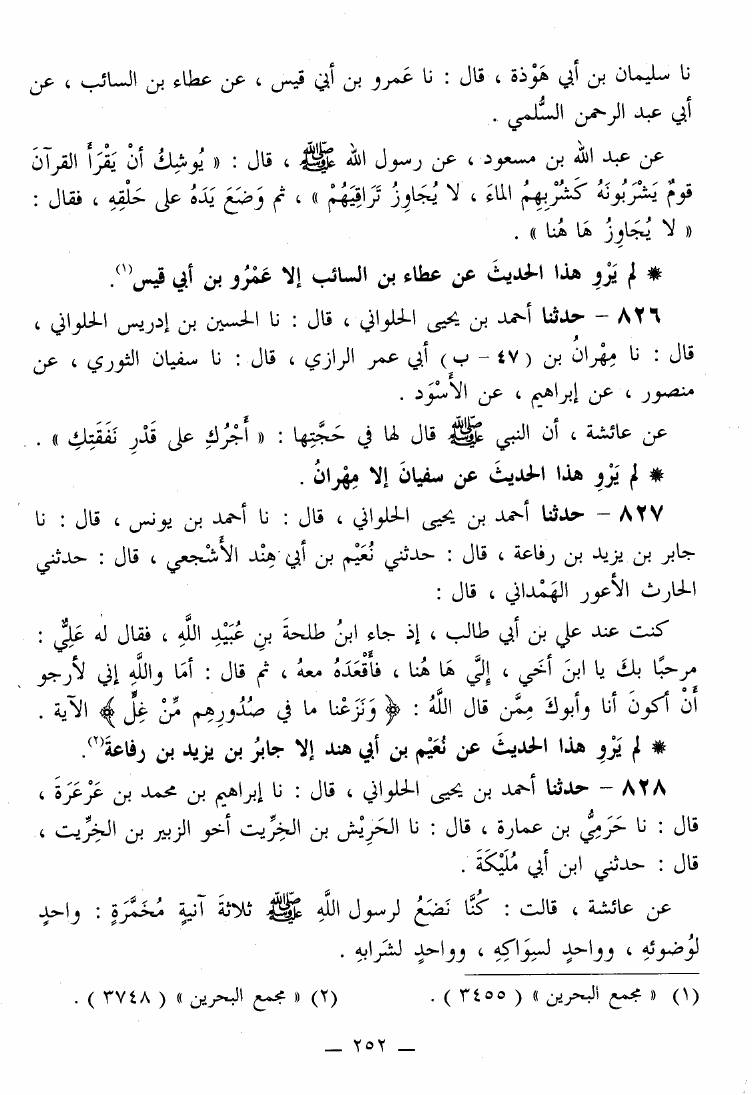 نا سليمان بن أبي هَوْذة ، قال : نا عَمرو بن أبي قيس ، عن عطاء بن السائب ، عن
أبي عبد الرحمن السُّلمي .
عن عبد الله بن مسعود ، عن رسول الله ﷺ ، قال : « يُوشِكُ أنْ يَقْرَأَ القرآنَ
قومٌ يَشْرَبُونَهُ كَشُرْبِهِمُ الماءَ ، لا يُجَاوِزُ تَرَاقِيَهُمْ » ، ثم وَضَعَ يَدَهُ على حَلْقِهِ ، فقال :
« لا يُجَاوِزُ هَا هُنا » .
* لم يَرْوِ هذا الحديثَ عن عطاء بن السائب إلا عَمْرُو بن أبي قيس(١).
٨٢٦ – حدثنا أحمد بن يحيى الحلواني ، قال : نا الحسين بن إدريس الحلواني ،
قال : نا مِهْرانُ بن (٤٧ – ب) أبي عمر الرازي ، قال : نا سفيان الثوري ، عن
منصور ، عن إبراهيم ، عن الأَسْوَد .
عن عائشة ، أن النبي ﷺ قال لها في حَجَّتِها : « أَجْرُكِ على قَدْرِ نَفَقَتِكِ » .
* لم يَرْوِ هذا الحديثَ عن سفيانَ إلا مِهْرانُ .
٨٢٧ – حدثنا أحمد بن يحيى الحلواني ، قال : نا أحمد بن يونس ، قال : نا
جابر بن يزيد بن رفاعة ، قال : حدثني نُعَيْم بن أبي هِنْد الأَشْجعي ، قال : حدثني
الحارث الأعور الهَمْداني ، قال :
كنت عند علي بن أبي طالب ، إذ جاء ابنُ طلحةَ بنِ عُبَيْدِ اللَّهِ ، فقال له عَلِيٌّ :
مرحبًا بكَ يا ابنَ أخي ، إلَيَّ هَا هُنا ، فأَقْعَدَهُ معهُ ، ثم قال : أمَا واللَّهِ إني لأرجو
أَنْ أكونَ أنا وأبوكَ مِمَّن قال اللَّهُ : ﴿ وَنَزَعْنا ما في صُدُورِهِم مِّنْ غِلٍّ ﴾ الآية .
* لم يَرْوِ هذا الحديثَ عن نُعَيْم بن أبي هند إلا جابرُ بن يزيد بن رفاعةَ(٢).
٨٢٨ – حدثنا أحمد بن يحيى الحلواني ، قال : نا إبراهيم بن محمد بن عَرْعَرَةَ ،
قال : نا حَرَمِيُّ بن عمارة ، قال : نا الحَرِيْش بن الخِرِّيت أخو الزبير بن الخِرِّيت ،
قال : حدثني ابن أبي مُلَيْكَةَ .
عن عائشة ، قالت : كُنَّا نَضَعُ لرسول اللَّهِ ﷺ ثلاثةَ آنيةٍ مُخَمَّرَةٍ : واحدٍ
لوُضوئهِ ، وواحدٍ لسِوَاكِهِ ، وواحدٍ لشَرابهِ .
(١) « مجمع البحرين » ( ٣٤٥٥ ) . (٢) « مجمع البحرين » ( ٣٧٤٨ ) .
– ٢٥٢ –